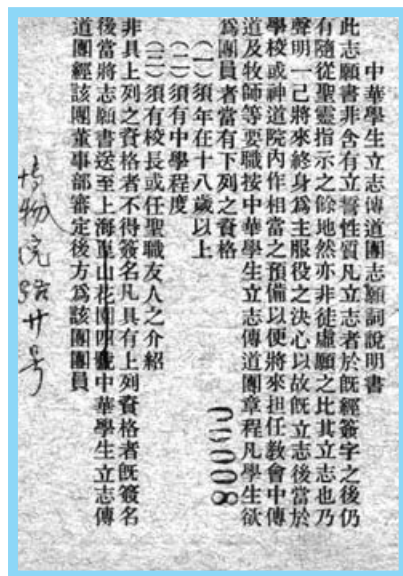 中華學生立志傳道團志願詞說明書
此志願書非含有立誓性質凡立志者於旣經簽字之後仍
有隨從聖靈指示之餘地然亦非徒虛願之比其立志也乃
聲明一己將來終身爲主服役之決心以故旣立志後當於
學校或神道院內作相當之預備以便將來担任敎會中傳
道及牧師等要職按中華學生立志傳道團章程凡學生欲
爲團員者當有下列之資格
(一)須年在十八歲以上
(二)須有中學程度
(三)須有校長或任聖職友人之介紹
非具上列之資格者不得簽名凡具有上列資格者旣簽名
後當將志願書送至上海崑山花園四號中華學生立志傳
道團經該團董事部審定後方爲該團團員
博物院路廿号